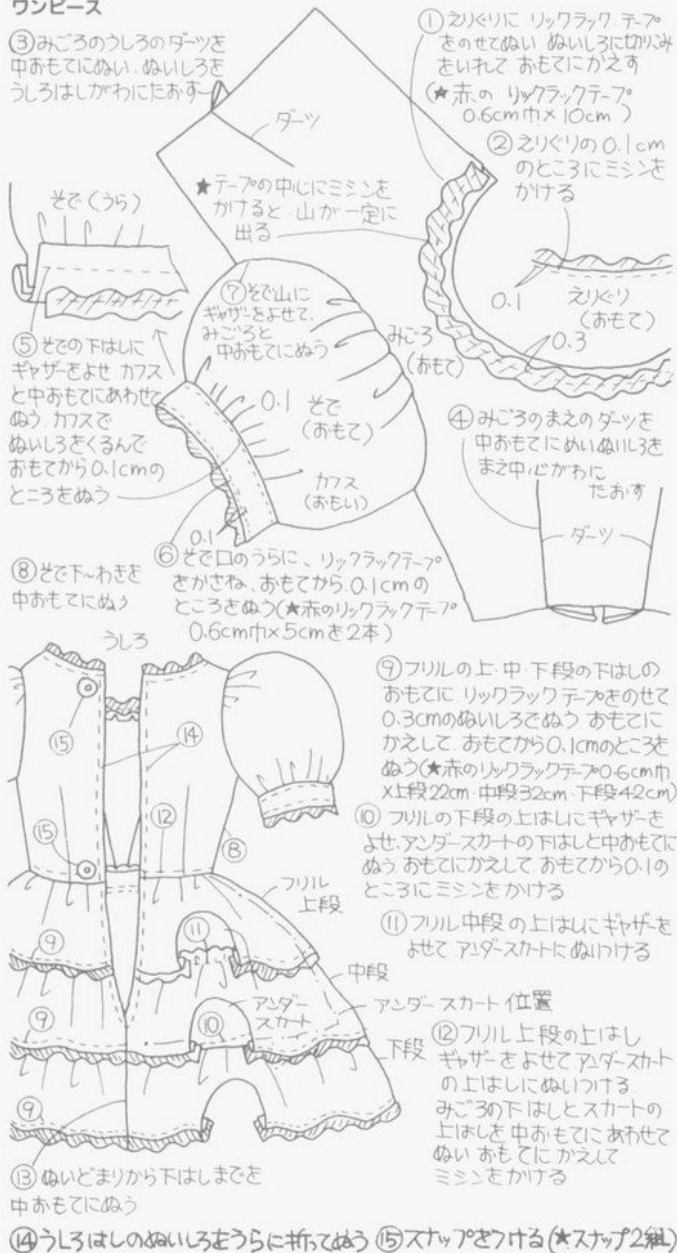 ワンピース
③みごろのうしろのダーツを
中おもてにぬい、ぬいしろを
うしろはしがわにたおす
①えりぐりに リックラック テープ
をのせてぬい ぬいしろに切りこみ
をいれて おもてにかえす
(★赤の リックラックテープ
0.6cm巾×10cm)
②えりぐりの0.1cm
のところにミシンを
かける
ダーツ
★テープの中心にミシンを
かけると 山が一定に
出る
そで(うら)
0.1
えりぐり
(おもて)
0.3
⑦そで山に
ギャザーをよせて、
みごろと
中おもてにぬう
みごろ
(おもて)
⑤そでの下はしに
ギャザーをよせ カフス
と中おもてにあわせて
ぬう カフスで
ぬいしろをくるんで
おもてから0.1cmの
ところをぬう
0.1
そで
(おもて)
カフス
(おもい)
0.1
④みごろのまえのダーツを
中おもてにめいぬいしろを
まえ中心がわに
たおす
ダーツ
⑥そで口のうらに、リックラックテープ
をかさね、おもてから0.1cmの
ところをぬう(★赤のリックラックテープ
0.6cm巾×5cmを2本)
⑧そで下~わきを
中おもてにぬう
うしろ
⑮
⑭
⑮
⑫
⑧
フリル
上段
⑨
⑪
中段
アンダー
スカート
アンダー スカート 位置
⑨
⑩
下段
⑨
⑨フリルの上・中・下段の下はしの
おもてに リックラックテープをのせて
0.3cmのぬいしろでぬう おもてに
かえして おもてから0.1cmのところを
ぬう(★赤のリックラックテープ0.6cm巾
×上段22cm・中段32cm・下段42cm)
⑩フリルの下段の上はしにギャザーを
よせ、アンダースカートの下はしと中おもてに
ぬう おもてにかえして おもてから0.1の
ところにミシンをかける
⑪フリル中段の上はしにギャザーを
よせて アンダースカートにぬいつける
⑫フリル上段の上はし
ギャザーをよせてアンダースカート
の上はしにぬいつける
みごろの下はしとスカートの
上はしを中おもてにあわせて
ぬい おもてにかえして
ミシンをかける
⑬ぬいどまりから下はしまでを
中おもてにぬう
⑭うしろはしのぬいしろをうらに折ってぬう ⑮スナップをつける(★スナップ2組)